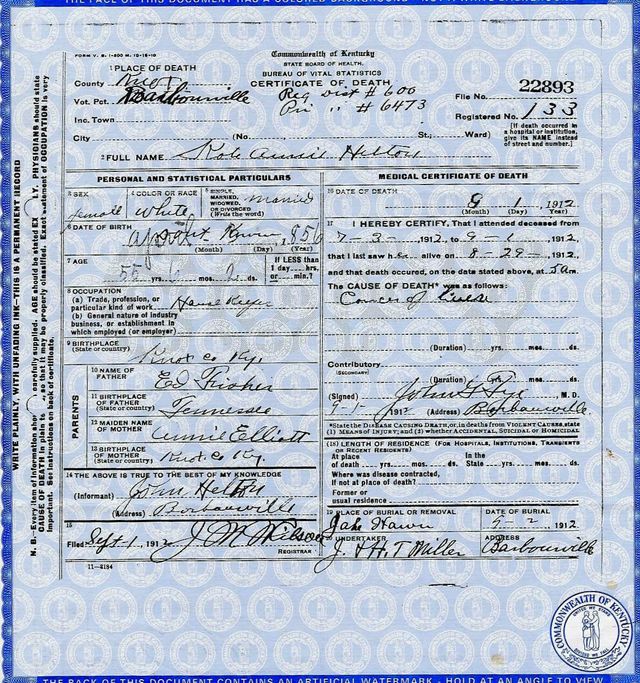 THE FACE OF THIS DOCUMENT HAS A COLORED BACKGROUND - NOT A WHITE BACKGROUND
FORM V. S. 1-500 M. 10-18-10
Commonwealth of Kentucky
STATE BOARD OF HEALTH.
BUREAU OF VITAL STATISTICS
CERTIFICATE OF DEATH
1 PLACE OF DEATH
County
Vot. Pct. Barbourville
Reg Dist # 600
Pri " # 6473
File No. 22893
Registered No. 133
Inc. Town
City (No. St.; Ward)
[If death occurred in a hospital or institution, give its NAME instead of street and number.]
2 FULL NAME Helton
PERSONAL AND STATISTICAL PARTICULARS
3 SEX female
4 COLOR OR RACE white
5 SINGLE, MARRIED, WIDOWED OR DIVORCED (Write the word) Married
6 DATE OF BIRTH
(Month) (Day) (Year)
7 AGE
55 yrs. mos. ds.
If LESS than 1 day hrs. or min.?
8 OCCUPATION
(a) Trade, profession, or particular kind of work House Keeper
(b) General nature of industry business, or establishment in which employed (or employer)
9 BIRTHPLACE
(State or country) Knox co Ky.
PARENTS
10 NAME OF FATHER Ed
11 BIRTHPLACE OF FATHER (State or country) Tennessee
12 MAIDEN NAME OF MOTHER Annie Elliott
13 BIRTHPLACE OF MOTHER (State or country) Knox co Ky.
14 THE ABOVE IS TRUE TO THE BEST OF MY KNOWLEDGE
(Informant) John Helton
(Address) Borbourville
15
Filed Sept 1, 1912 J M Wilson
REGISTRAR
11-3184
MEDICAL CERTIFICATE OF DEATH
16 DATE OF DEATH
9 1, 1912
(Month) (Day) (Year)
17 I HEREBY CERTIFY, That I attended deceased from
7-3, 1912, to 9-1, 1912,
that I last saw her alive on 8-29-, 1912,
and that death occured, on the date stated above, at 5 am.
The CAUSE OF DEATH* was as follows:
Cancer of
(Duration) yrs. mos. ds.
Contributory
(SECONDARY)
(Duration) yrs. mos. ds.
(Signed) John, M. D.
9-1, 1912 (Address) Borbourville
*State the DISEASE CAUSING DEATH, or, in deaths from VIOLENT CAUSES, state (1) MEANS OF INJURY; and (2) whether ACCIDENTAL, SUICIDAL OR HOMICIDAL
(18) LENGTH OF RESIDENCE (FOR HOSPITALS, INSTITUTIONS, TRANSIENTS OR RECENT RESIDENTS)
At place of death yrs. mos. ds. In the State yrs. mos. ds.
Where was disease contracted,
if not at place of death?
Former or usual residence
19 PLACE OF BURIAL OR REMOVAL
DATE OF BURIAL
9-2, 1912
20 UNDERTAKER
J. & H. T Miller
ADDRESS
Barbourville
WRITE PLAINLY, WITH UNFADING INK—THIS IS A PERMANENT RECORD
COMMONWEALTH OF KENTUCKY
THE BACK OF THIS DOCUMENT CONTAINS AN ARTIFICIAL WATERMARK - HOLD AT AN ANGLE TO VIEW